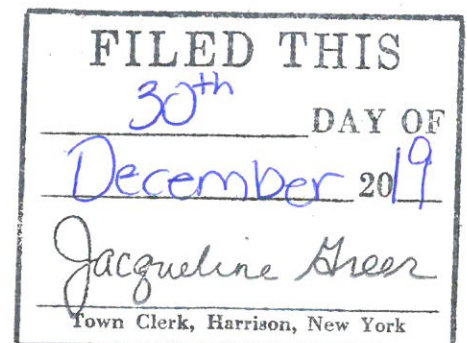 FILED THIS
30th
DAY OF
December 2019
Jacqueline Greer
Town Clerk, Harrison, New York